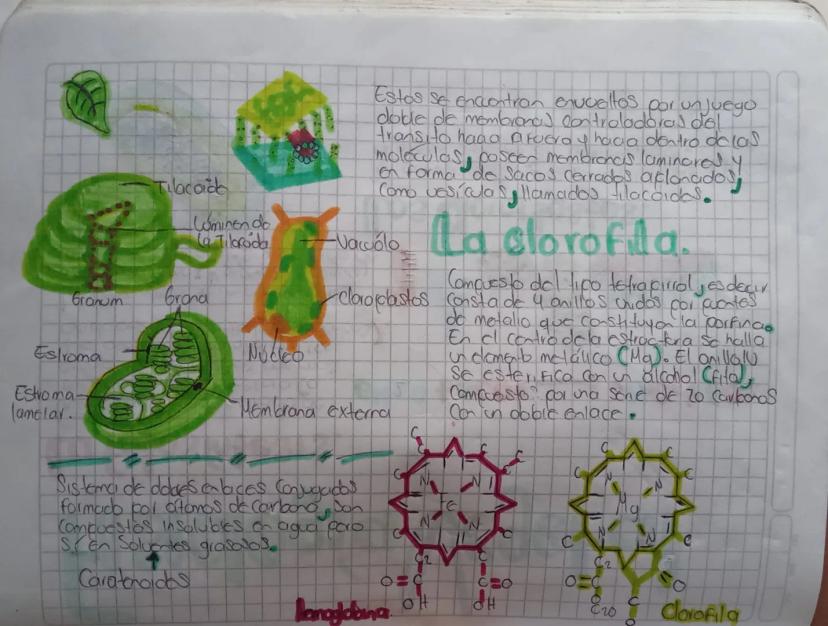 Estos se encontran envueltos por un juego
doble de membranas controladoras del
transito hacia afuera y hacia dentro de las
moléculas, poseen membranas laminares y
en forma de sacos cerrados aplanados,
como vesículas, llamados tilacoides.
Tilacoide
Lumen de
la Tilacoide
Granum
Grana
Vacuolo
Cloroplastos
Núcleo
Estroma
Estroma
lamelar.
Membrana externa
La clorofila.
Compuesto del tipo tetrapirrol, es decir
consta de 4 anillos unidos por puentes
de metalio que constituyen la porfina.
En el centro de la estructura se halla
un elemento metálico (Mg). El anillo IV
se esterifica con un alcohol (fitol),
compuesto por una serie de 20 carbonos
con un doble enlace.
Sistema de dobles enlaces conjugados
formado por átomos de carbono, son
compuestos insolubles en agua pero
sí en solventes grasosos.
Carotenoides
C
C
C
C
C
C
N
N
Fe
N
N
C2
C
O=C
C=O
OH
OH
Hemoglobina
C
C
C
C
C
N
N
Mg
N
N
C2
O=C
C20
O
C
O
Clorofila